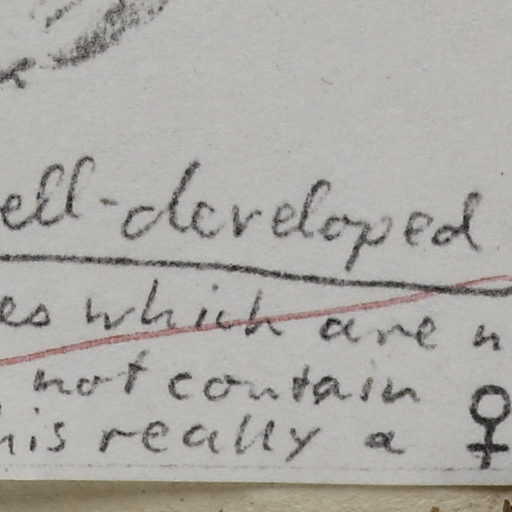 ell-developed
es which are n
not contain
his really a ♀